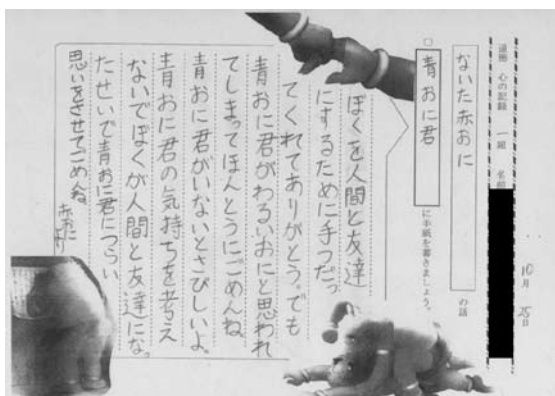 道徳 心の記録 一組 名前
10月25日
ないた赤おに
の話
○
青おに君
に手紙を書きましょう。
ぼくを人間と友達
にするために手つだっ
てくれてありがとう。でも
青おに君がわるいおにと思われ
てしまってほんとうにごめんね。
青おに君がいないとさびしいよ。
青おに君の気持ちを考え
ないでぼくが人間と友達になっ
たせいで青おに君につらい
思いをさせてごめんね。
赤おに
より